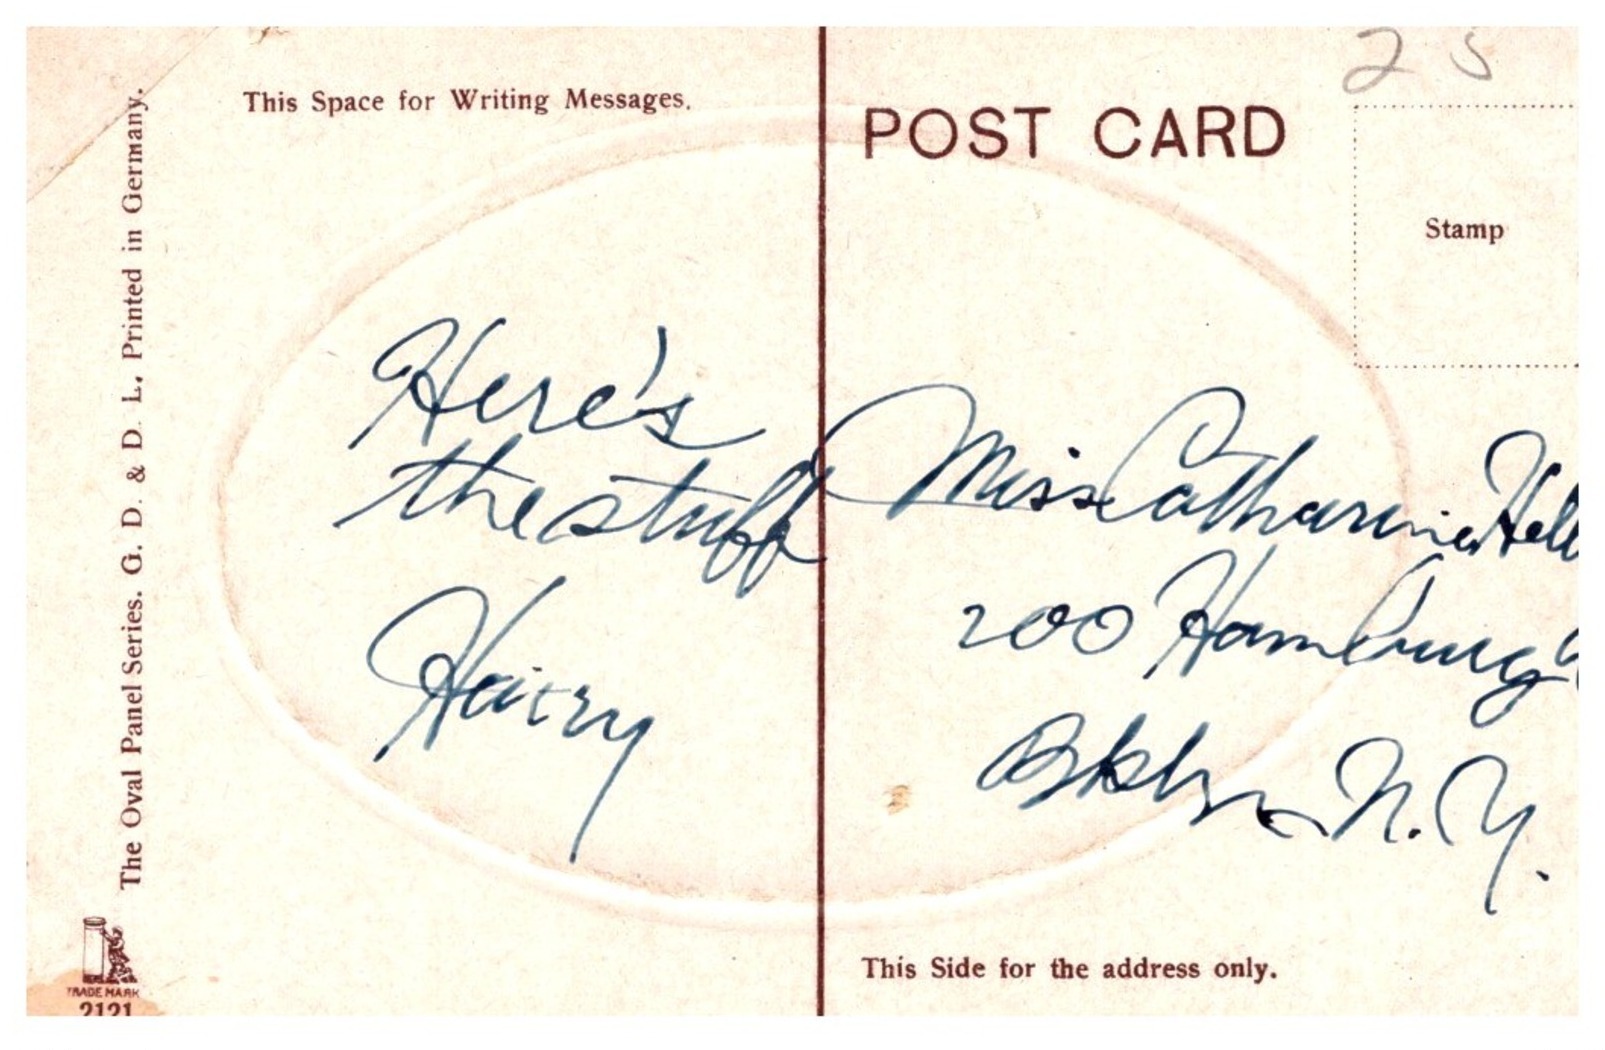 25
This Space for Writing Messages.
POST CARD
Stamp
Here's
the stuff
Harry
Miss Catharine Hell
200 Hamburg
Bklyn N.Y.
This Side for the address only.
The Oval Panel Series. G. D. & D. L. Printed in Germany.
TRADE MARK
2121